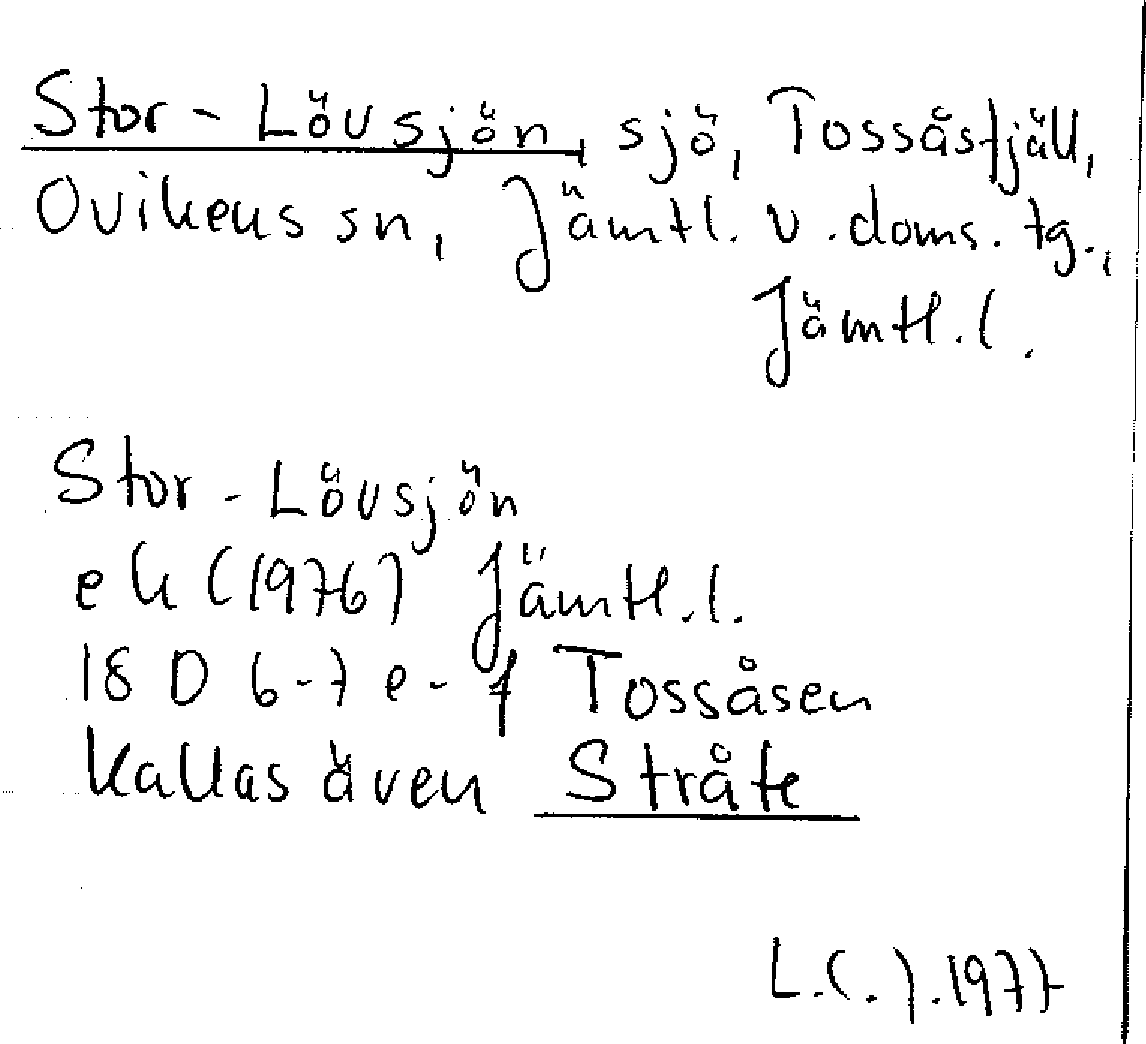 Stor-Lövsjön, sjö, Tossåsfjäll,
Ovikens sn, Jämtl. v. doms. tg.,
Jämtl. l.
Stor-Lövsjön
ek (1976) Jämtl. l.
18 D 6-7 e-f Tossåsen
Kallas även Stråte
L.C.J. 1977